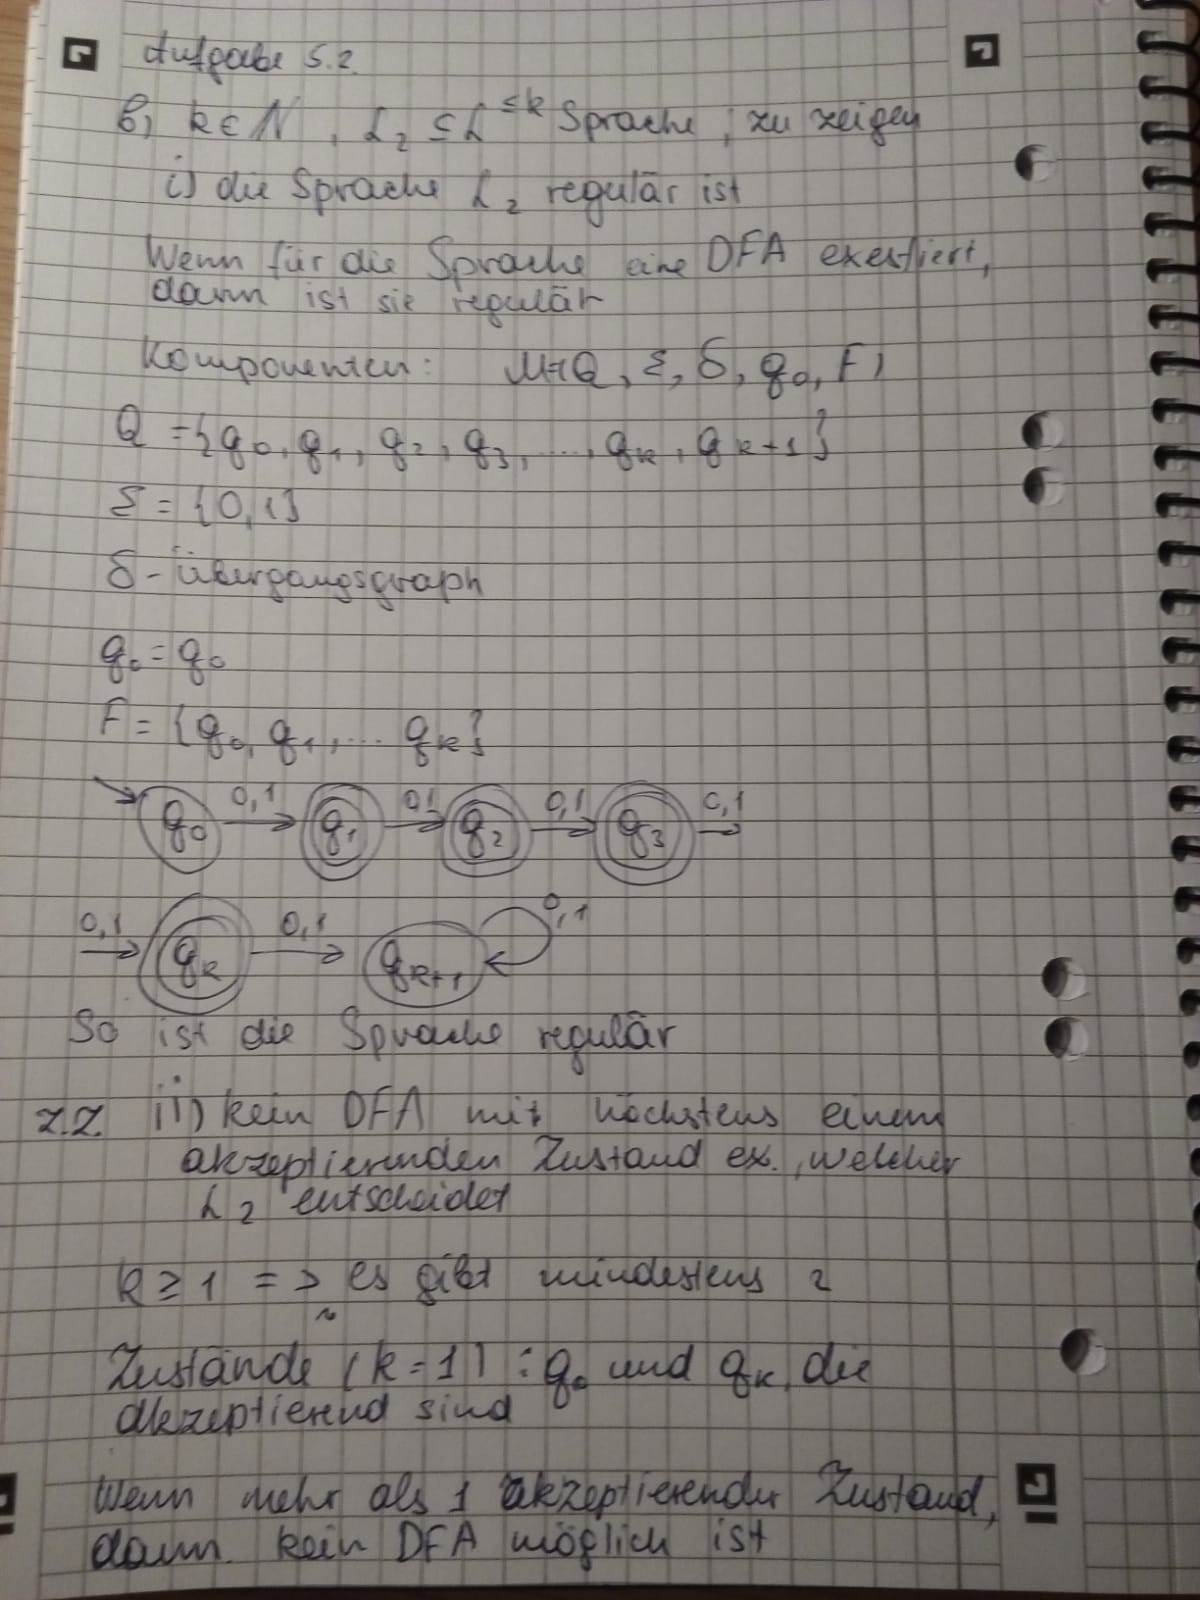 Aufgabe 5.2.
b) k ∈ N, L₂ ⊆ L^≤k Sprache, zu zeigen
i) die Sprache L₂ regulär ist
Wenn für die Sprache eine DFA exestiert,
dann ist sie regulär
Komponenten: M=(Q, Σ, δ, q₀, F)
Q = {q₀, q₁, q₂, q₃, ..., qₖ, qₖ₊₁}
Σ = {0,1}
δ - Übergangsgraph
q₀ = q₀
F = {q₀, q₁, ... qₖ}
q₀ 0,1 q₁ 0,1 q₂ 0,1 q₃ 0,1
0,1 qₖ 0,1 qₖ₊₁ 0,1
So ist die Sprache regulär
z.Z. ii) kein DFA mit höchstens einem
akzeptierenden Zustand ex., welcher
L₂ entscheidet
k ≥ 1 => es gibt mindestens 2
Zustände (k=1) : q₀ und qₖ, die
akzeptierend sind
Wenn mehr als 1 akzeptierender Zustand,
dann kein DFA möglich ist